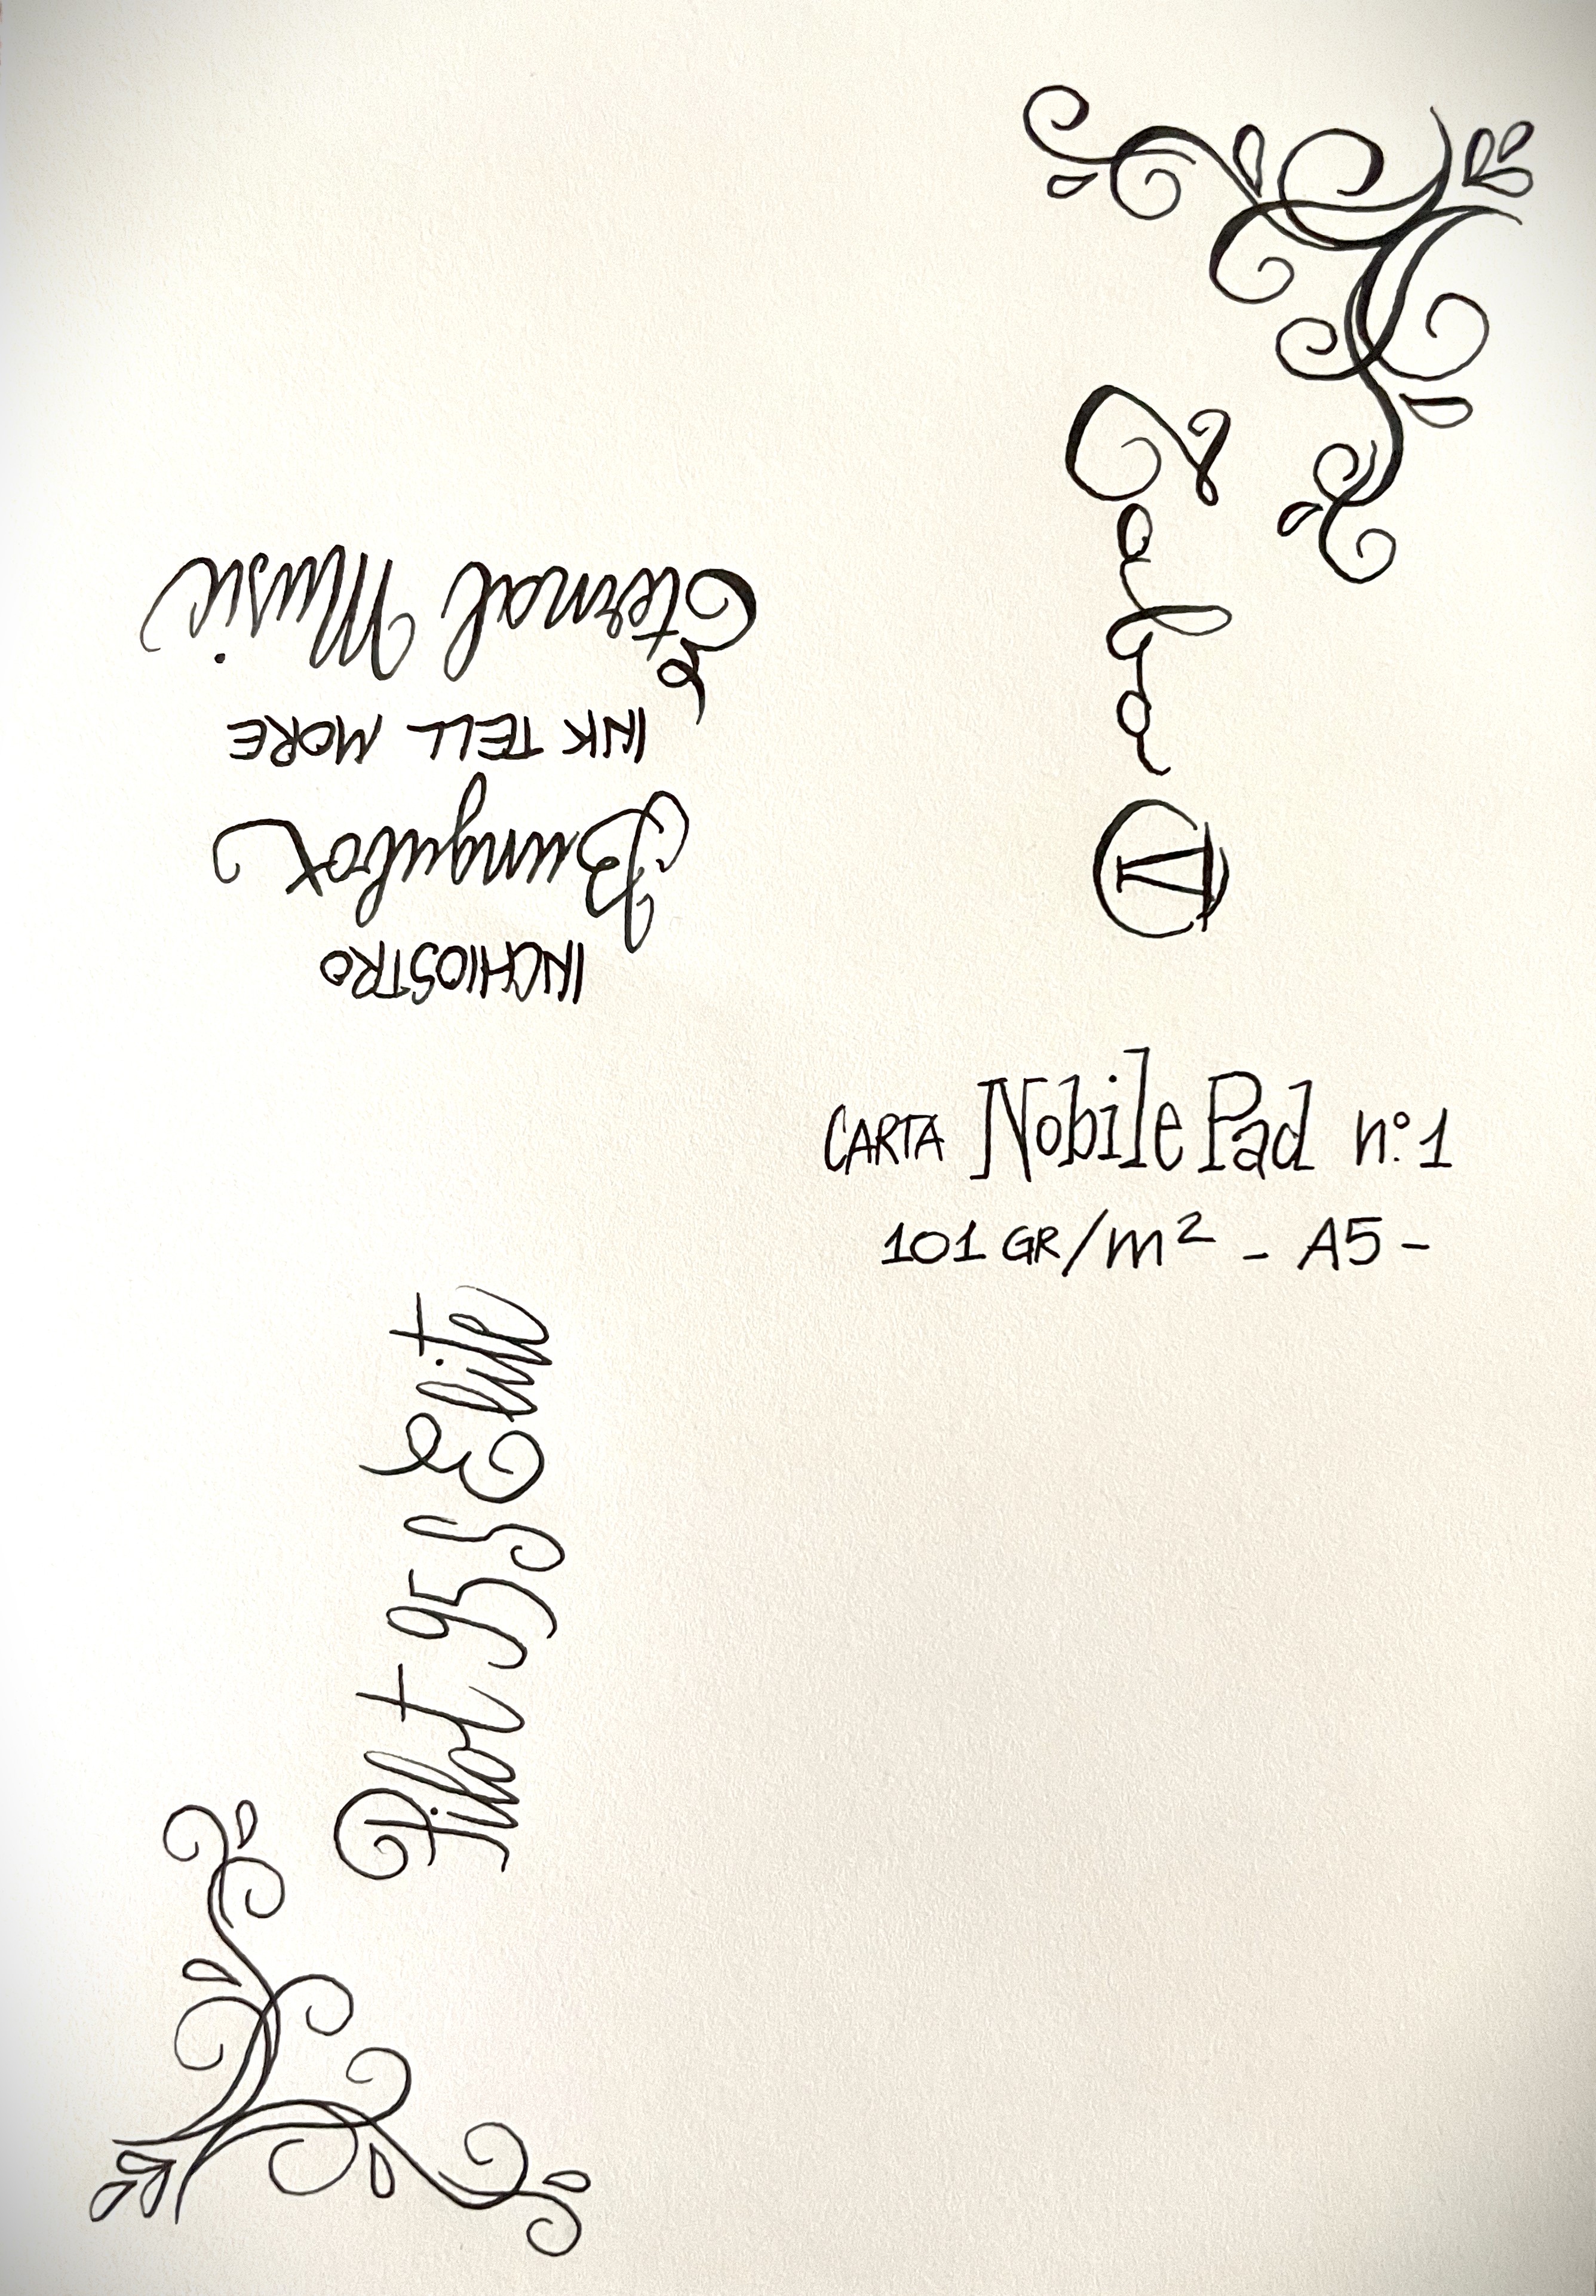 INCHIOSTRO
Bungubox
INK TELL MORE
Eternal Music
CARTA Nobile Pad n°1
101 GR/m² - A5 -
Pilot 95S Elite